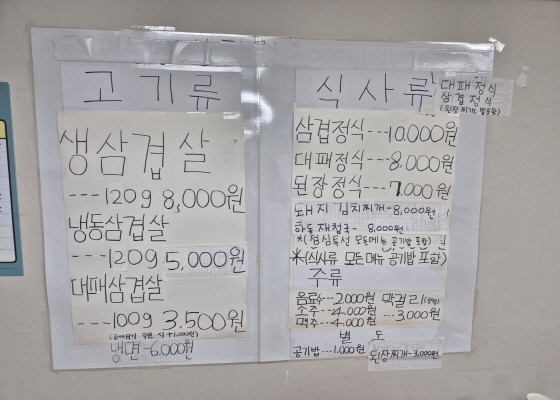 고기류
생삼겹살
---120g 8,000원
냉동삼겹살
---120g 5,000원
대패삼겹살
---100g 3,500원
냉면-6,000원
식사류
대패정식
삼겹정식
(된장찌개, 밥포함)
삼겹정식---10,000원
대패정식---8,000원
된장정식---7,000원
돼지 김치찌개-8,000원
하동재첩국- 8,000원
*(점심특선 모든메뉴 공기밥 포함)
*(식사류 모든메뉴 공기밥 포함)
주류
음료수--2,000원
소주---4,000원
맥주---4,000원
막걸리
---3,000원
별도
공기밥-1,000원
된장찌개-3,000원